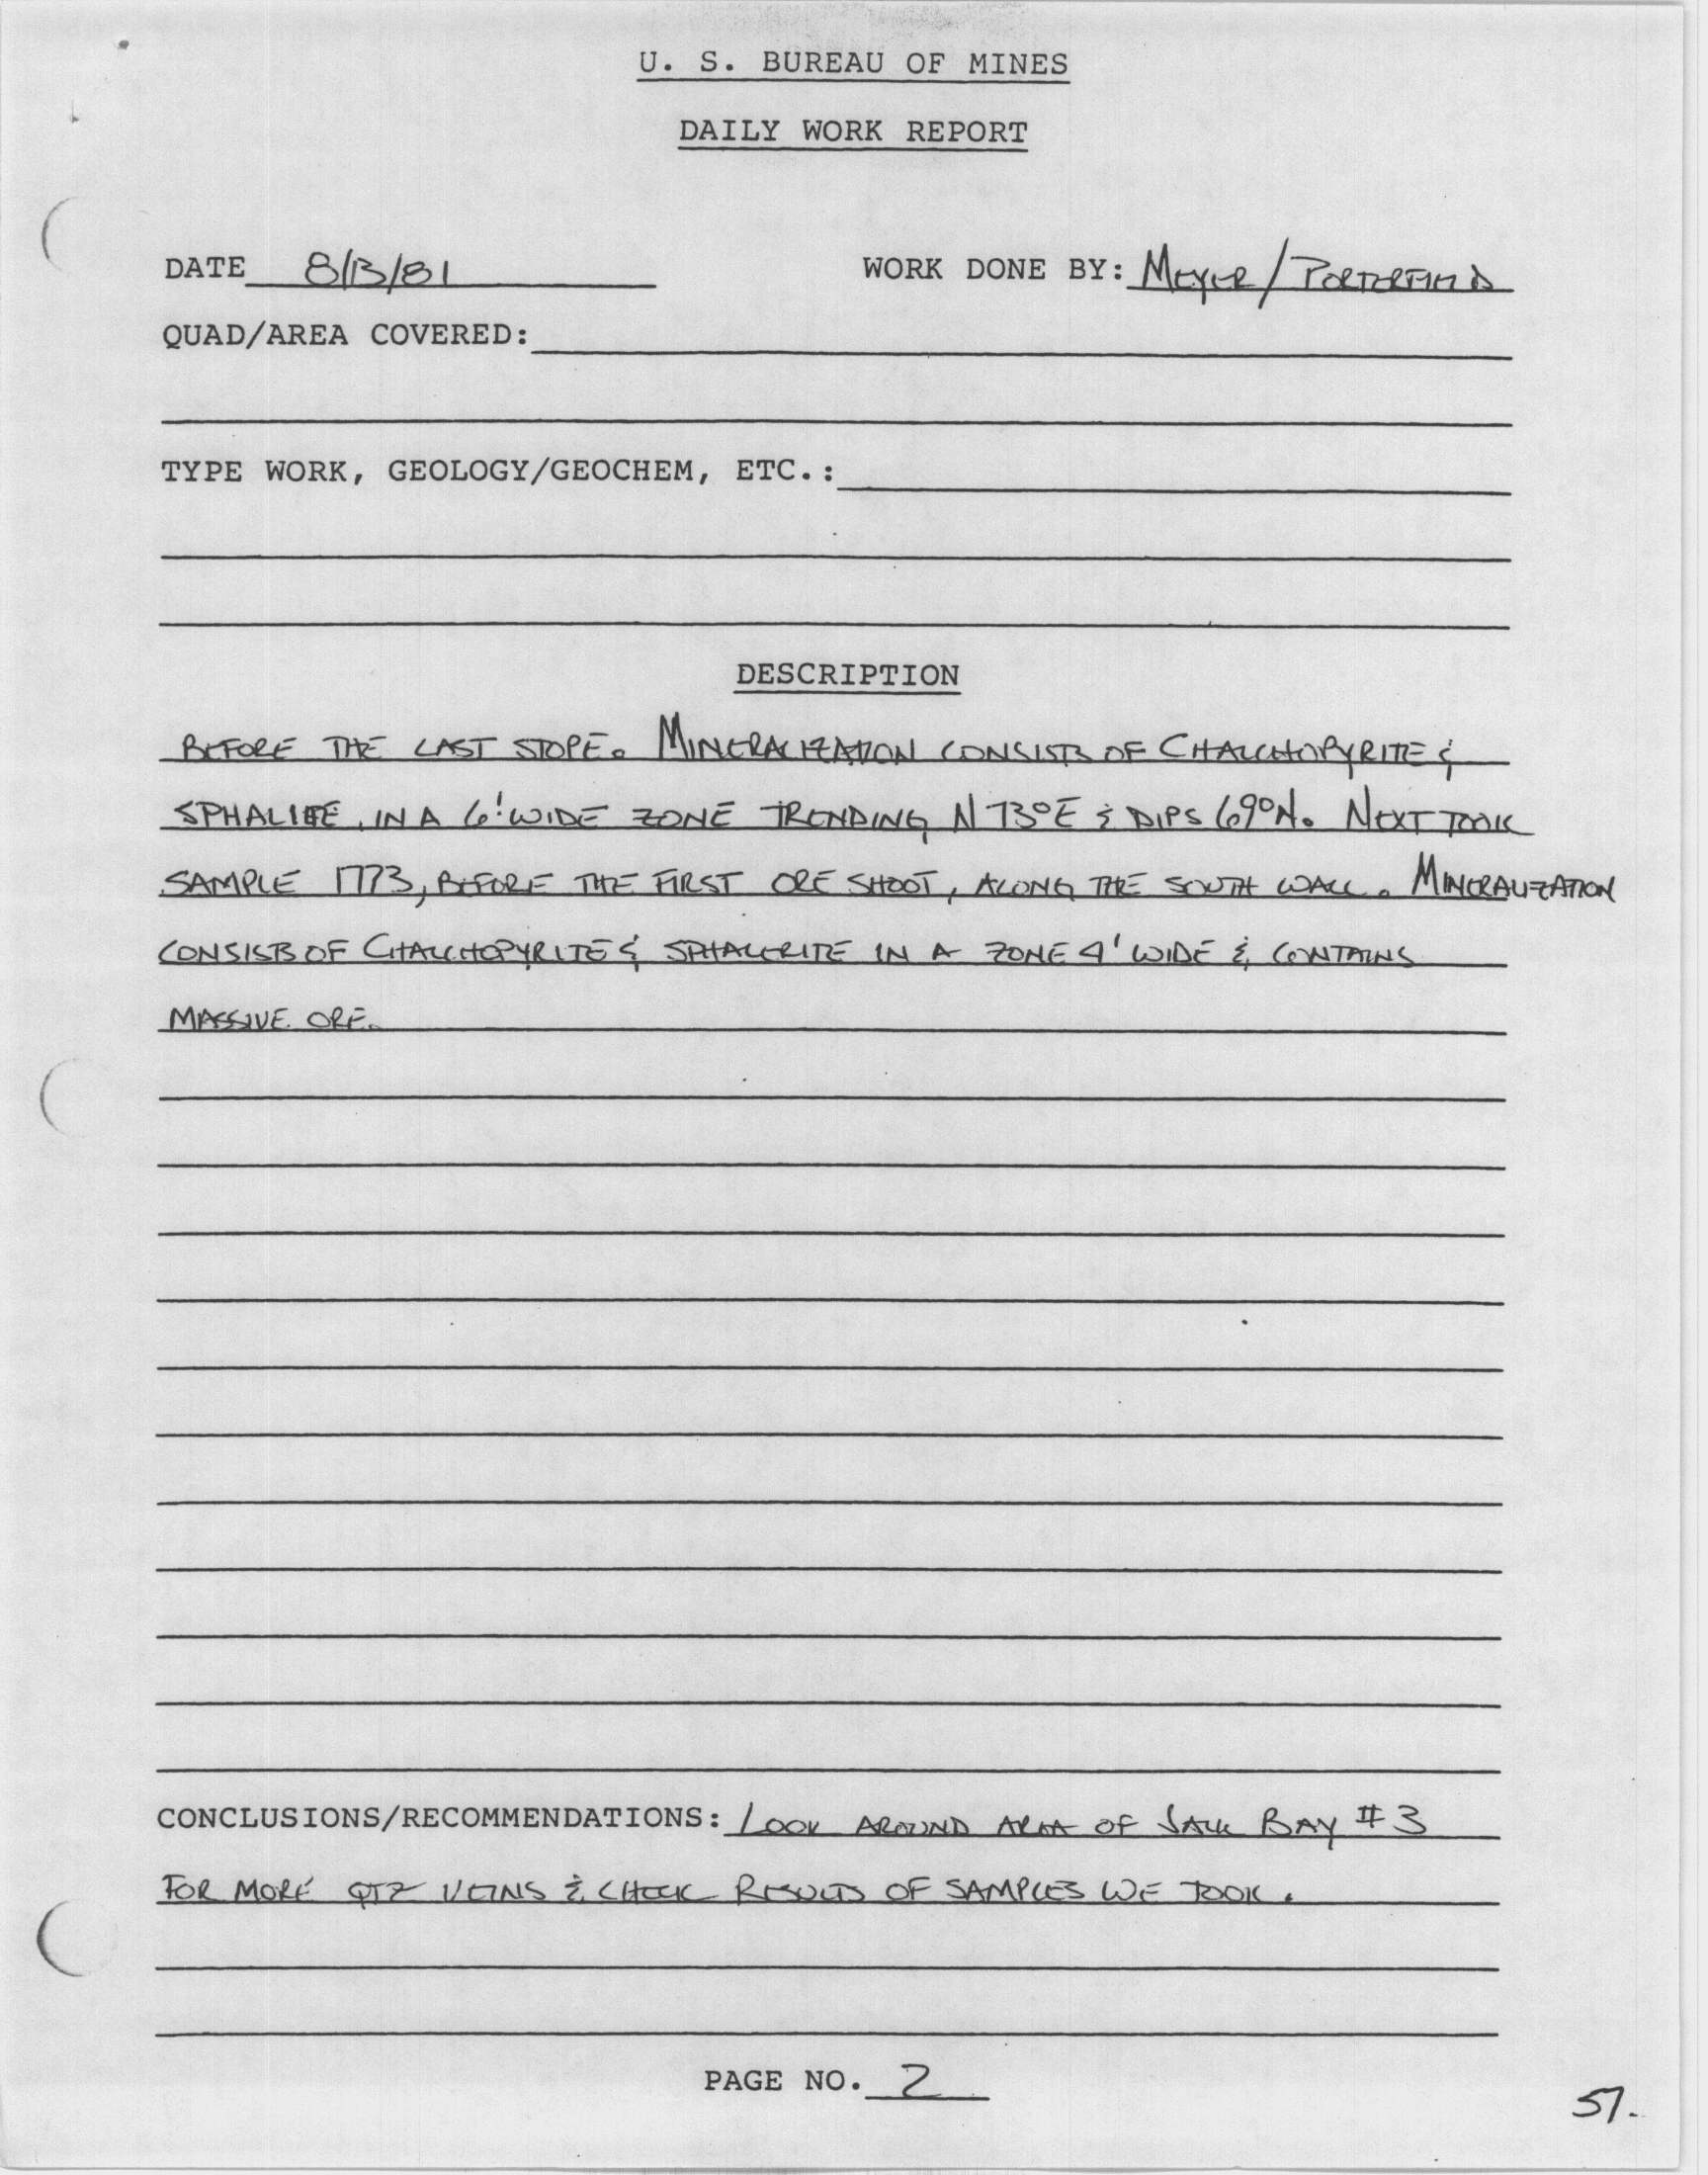 U. S. BUREAU OF MINES
DAILY WORK REPORT
DATE 8/13/81 WORK DONE BY: MEYER / PORTERFIELD
QUAD/AREA COVERED:
TYPE WORK, GEOLOGY/GEOCHEM, ETC.:
DESCRIPTION
BEFORE THE LAST STOPE. MINERALIZATION CONSISTS OF CHALCHOPYRITE &
IN A 6' WIDE ZONE TRENDING N 73°E & DIPS 69°N. NEXT TOOK
SAMPLE 1773, BEFORE THE FIRST ORE SHOOT, ALONG THE SOUTH WALL. MINERALIZATION
CONSISTS OF CHALCHOPYRITE & SPHALERITE IN A ZONE 4' WIDE & CONTAINS
MASSIVE ORE.
CONCLUSIONS/RECOMMENDATIONS: LOOK AROUND AREA OF JACK BAY #3
FOR MORE QTZ VEINS & CHECK RESULTS OF SAMPLES WE TOOK.
PAGE NO. 2
57.